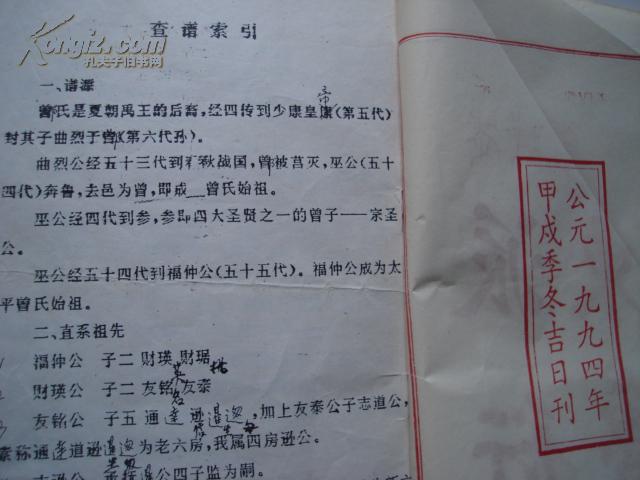 Kongfz.com
孔夫子旧书网
查谱索引
一、谱源
曾氏是夏朝禹王的后裔,经四传到少康皇帝(第五代)
封其子曲烈于曾(第六代孙)。
曲烈公经五十三代到春秋战国,曾被莒灭,巫公(五十
四代)奔鲁,去邑为曾,即成 曾氏始祖。
巫公经四代到参,参即四大圣贤之一的曾子——宗圣
公。
巫公经五十四代到福仲公(五十五代)。福仲公成为太
平曾氏始祖。
二、直系祖先
福仲公 子二 财瑛 财琚
财瑛公 子二 友铭 友泰
友铭公 子五 通 逊 ,加上友泰公子志道公,
称通 道逊 为老六房,我属四房逊公。
公四子监为嗣。
公元一九九四年
甲戌季冬吉日刊